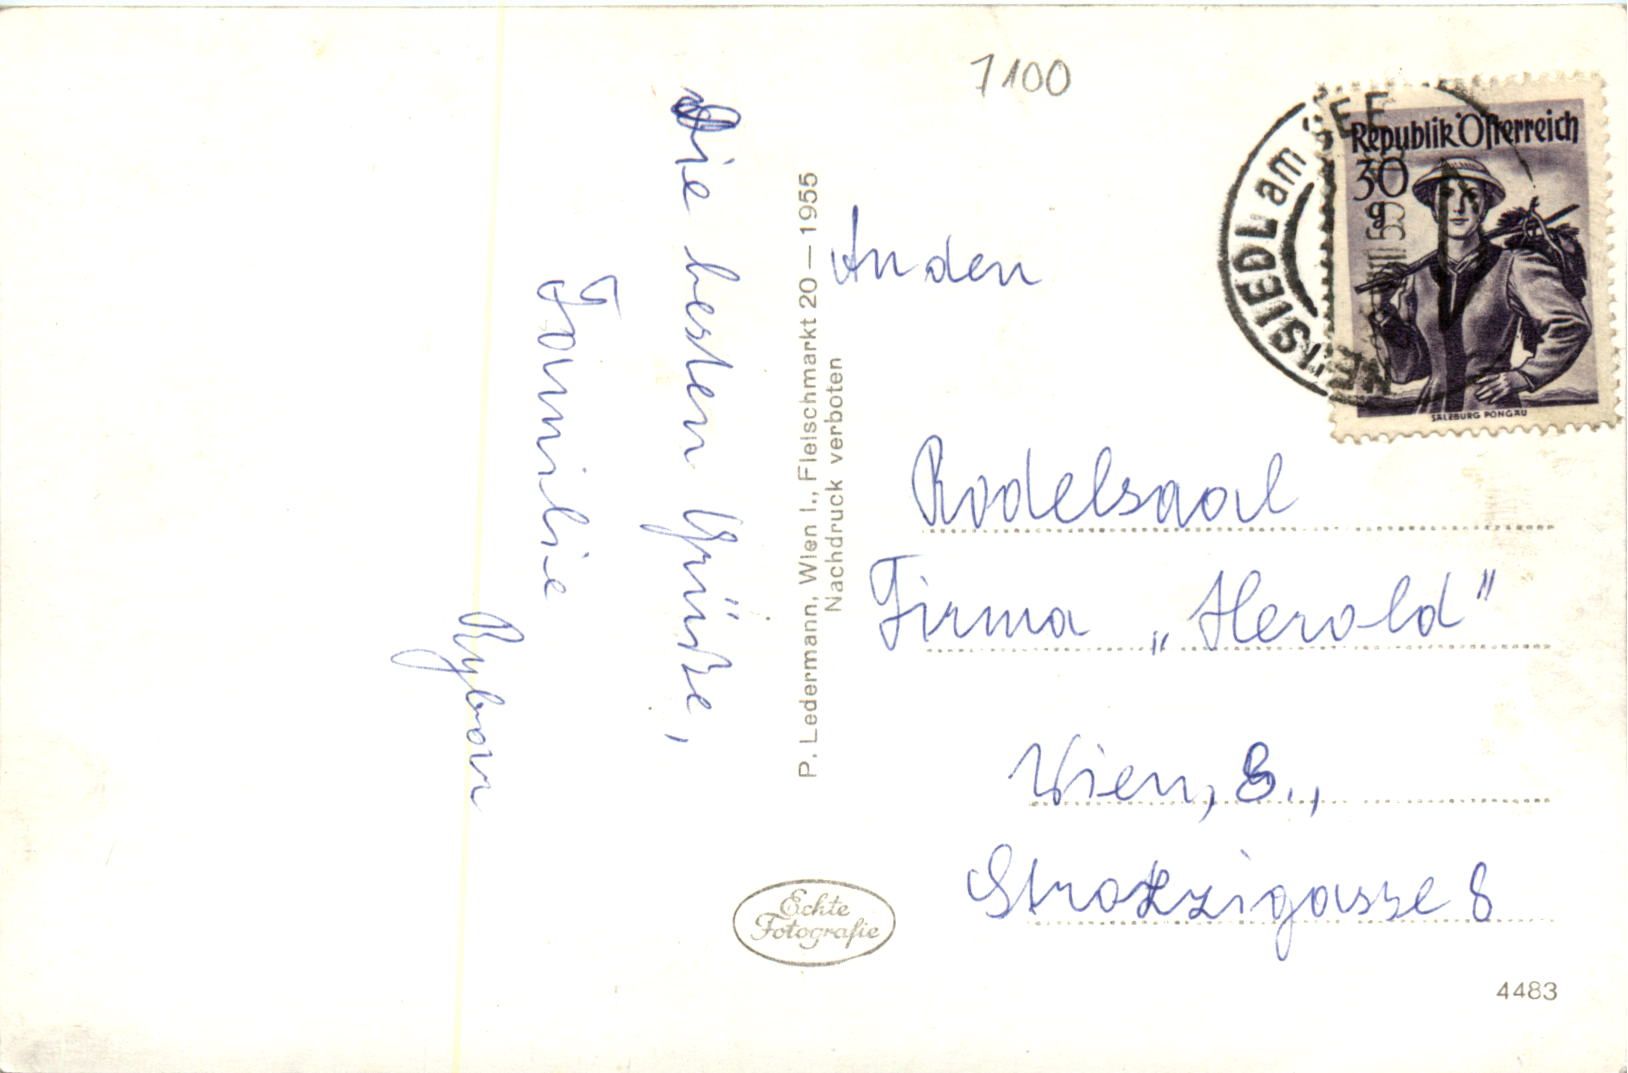 7100
Die besten Grüße,
Familie
P. Ledermann, Wien I., Fleischmarkt 20 — 1955
Nachdruck verboten
NEUSIEDL am SEE
Republik Österreich
30
g
SALZBURG PONGAU
An den
Rodelsaal
Firma „Herold"
Wien, 8.,
Strozzigasse 8
Echte
Fotografie
4483